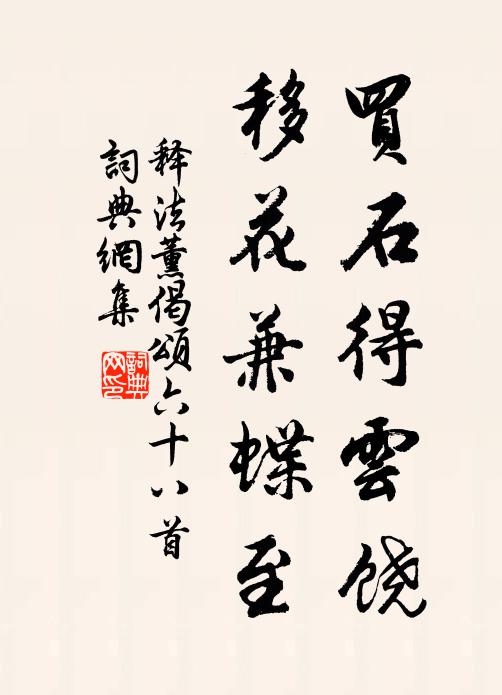 買石得雲饶
移花兼蝶至
释法薰偈頌六十八首
詞典網集
詞典
网印